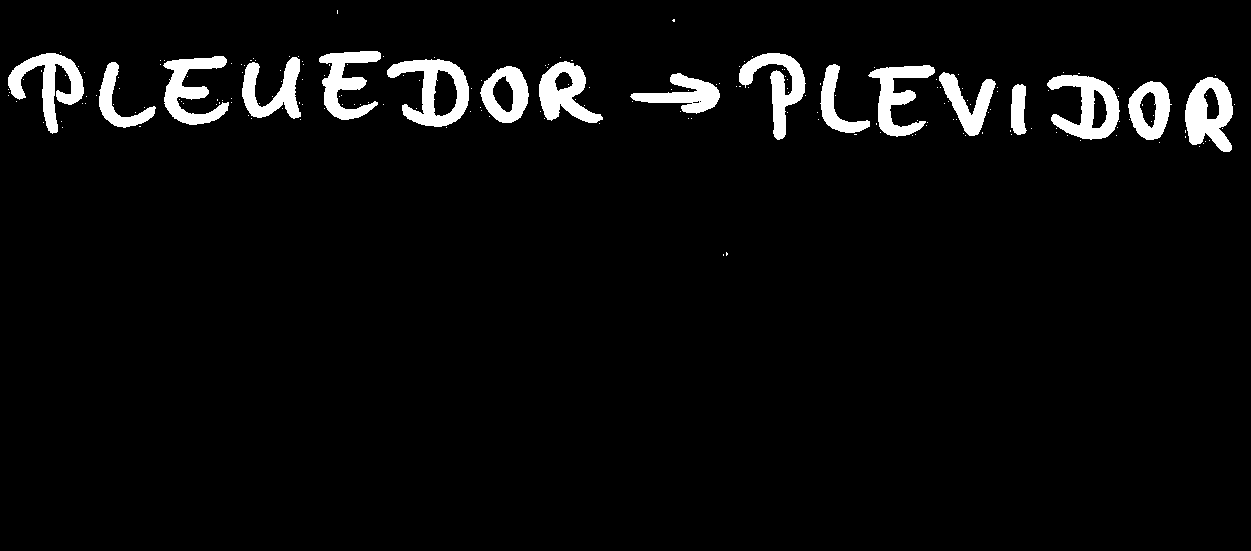 PLEUEDOR → PLEVIDOR